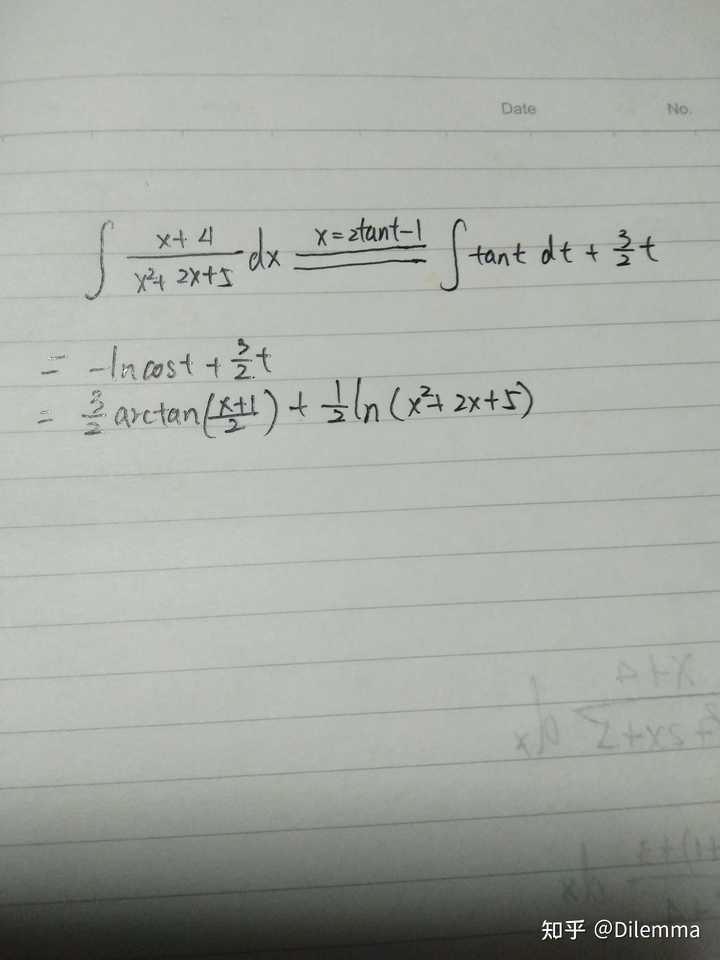 Date No.
∫ (x+4)/(x²+2x+5) dx x=2tant-1 ∫ tant dt + 3/2 t
= -ln cost + 3/2 t
= 3/2 arctan((x+1)/2) + 1/2 ln(x²+2x+5)
知乎 @Dilemma